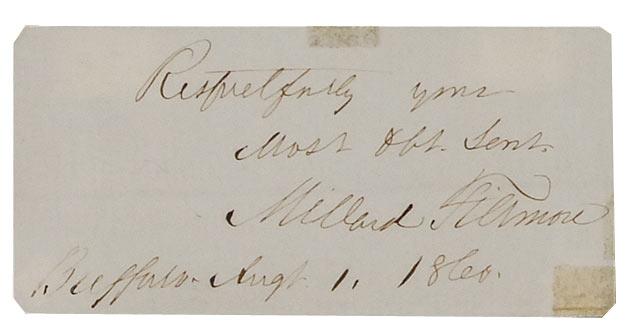 Respectfully your
Most Obt. Servt.
Millard Fillmore
Buffalo. Augt 1. 1860.